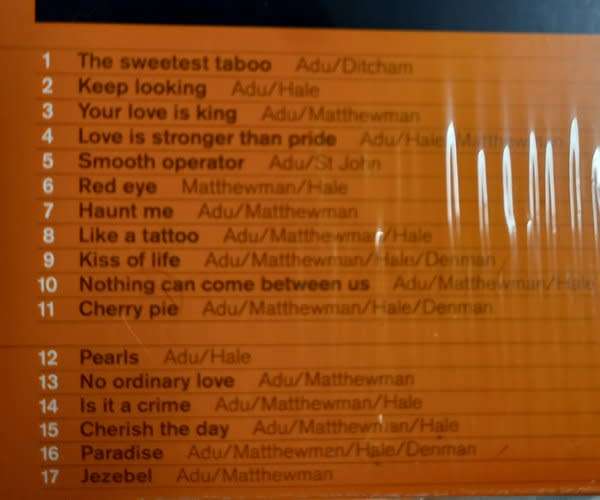 1 The sweetest taboo Adu/Ditcham
2 Keep looking Adu/Hale
3 Your love is king Adu/Matthewman
4 Love is stronger than pride Adu/Hale/Matthewman
5 Smooth operator Adu/St John
6 Red eye Matthewman/Hale
7 Haunt me Adu/Matthewman
8 Like a tattoo Adu/Matthewman/Hale
9 Kiss of life Adu/Matthewman/Hale/Denman
10 Nothing can come between us Adu/Matthewman/Hale
11 Cherry pie Adu/Matthewman/Hale/Denman
12 Pearls Adu/Hale
13 No ordinary love Adu/Matthewman
14 Is it a crime Adu/Matthewman/Hale
15 Cherish the day Adu/Matthewman/Hale
16 Paradise Adu/Matthewman/Hale/Denman
17 Jezebel Adu/Matthewman